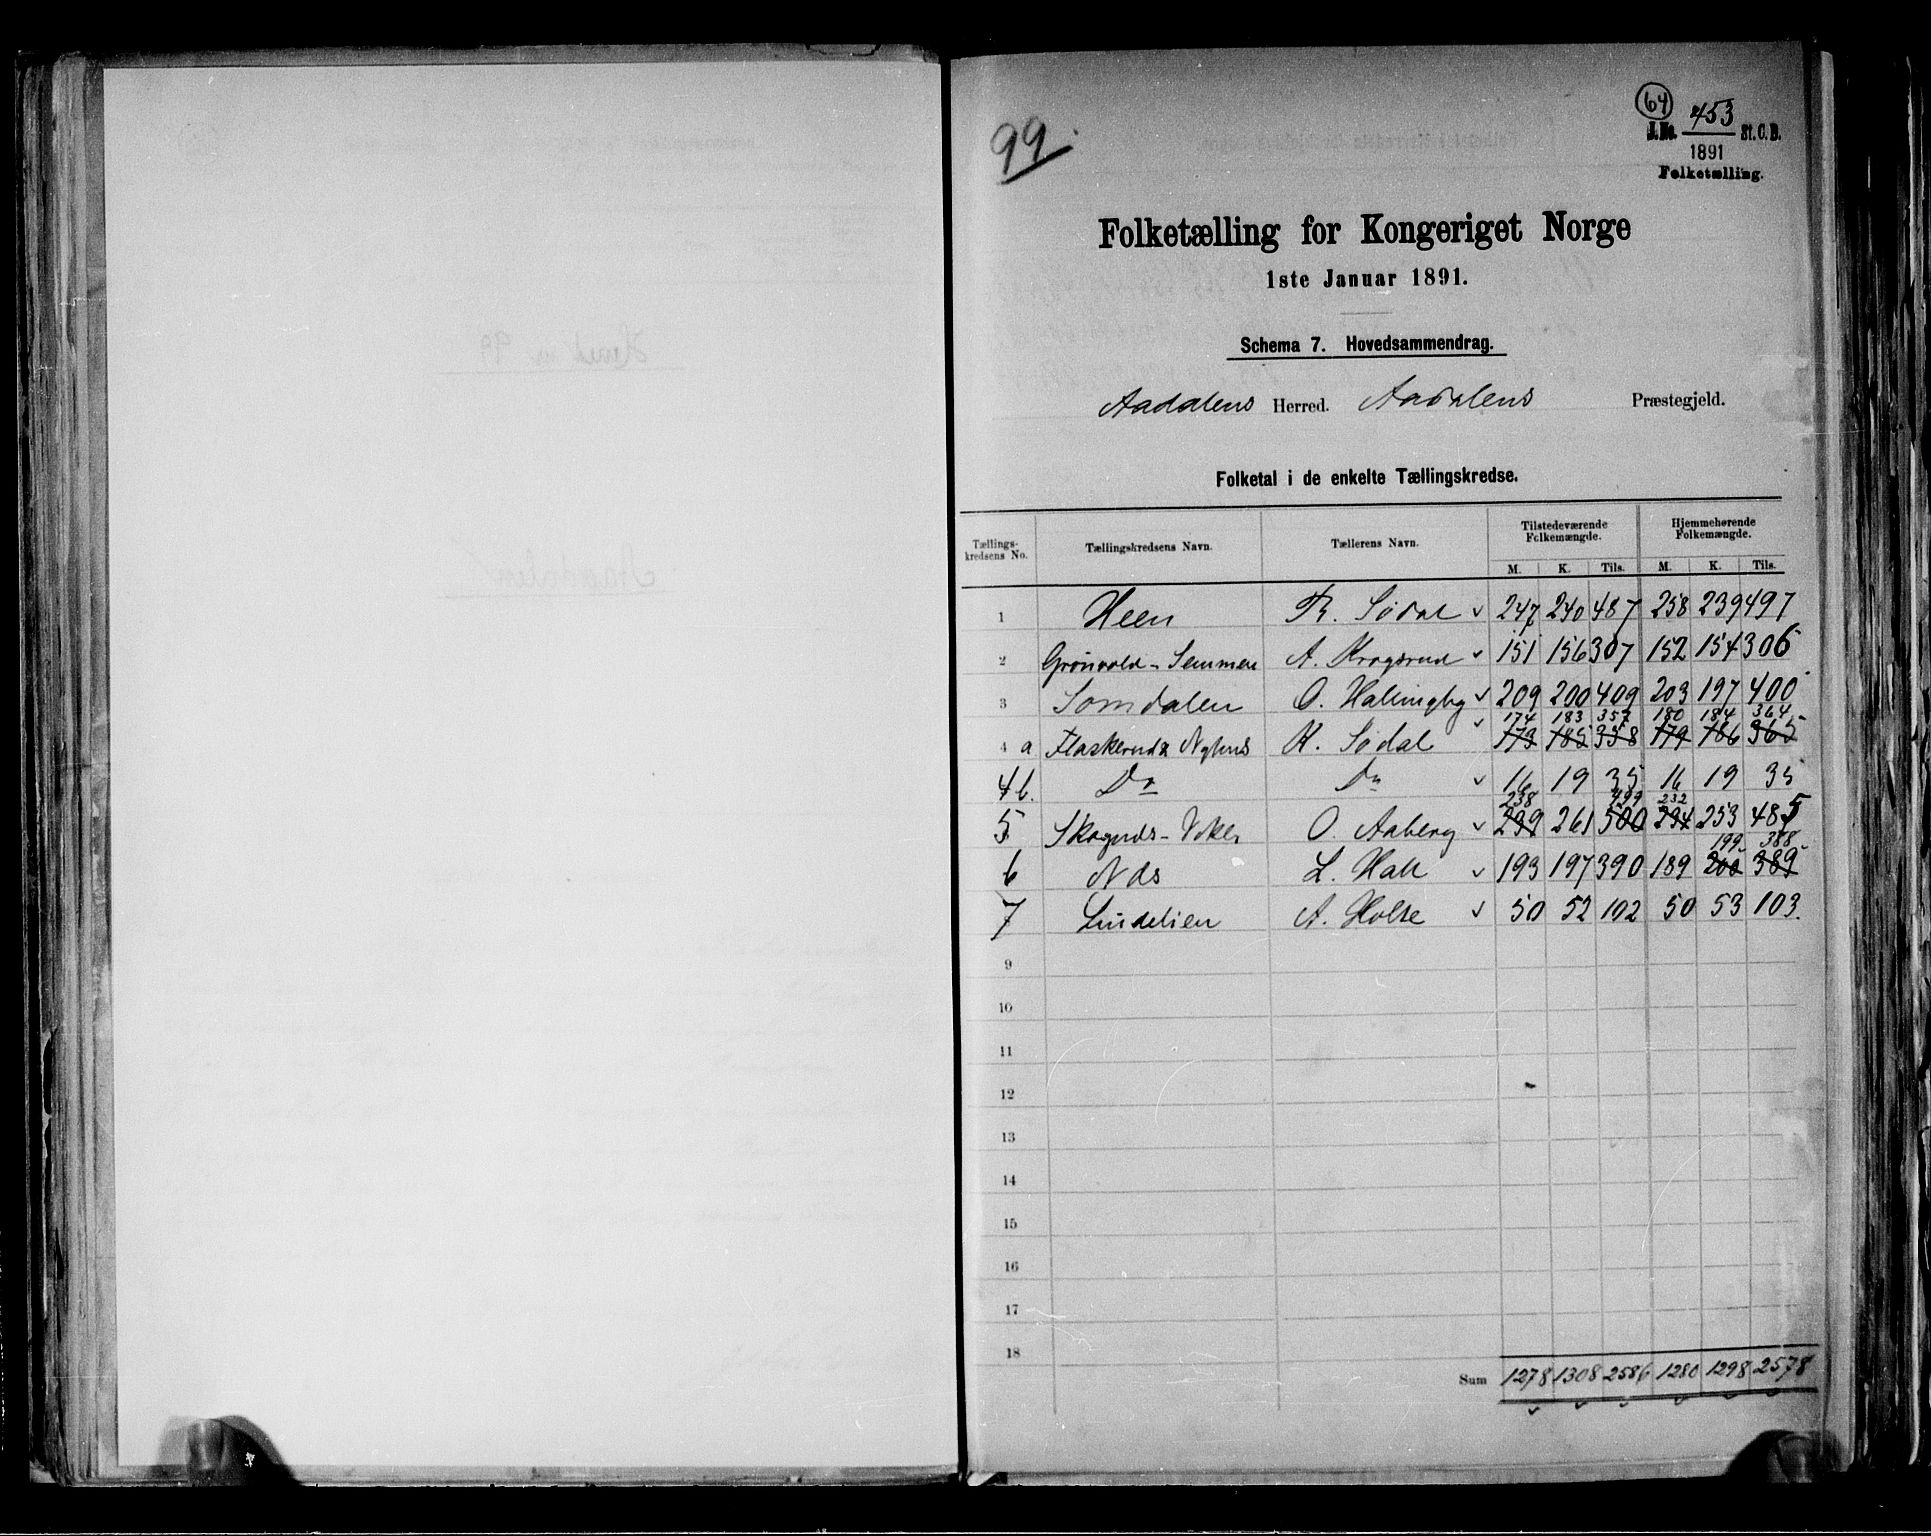 64
99.
J.No. 453 St. C. B.
1891
Folketælling.
Folketælling for Kongeriget Norge
1ste Januar 1891.
Schema 7. Hovedsammendrag.
Aadalens Herred. Aadalens Præstegjeld.
Folketal i de enkelte Tællingskredse.
Tællings-kredsens No. Tællingskredsens Navn. Tællerens Navn. Tilstedeværende Folkemængde. Hjemmehørende Folkemængde.
M. K. Tils. M. K. Tils.
1 Heen Th. Sødal 247 240 487 258 239 497
2 Grønvold-Semmen A. Kragsrud 151 156 307 152 154 306
3 Somdalen O. Hallingby 209 200 409 203 197 400
174 183 357 180 184 364
4 a Flaskerud & Nyhus K. Sødal 173 185 358 179 186 365
4 b. Do Do 16 19 35 16 19 35
238 499 232
5 Skagnds-Voker O. Aaberg 239 261 500 234 253 485
199 388
6 Nds L. Hall 193 197 390 189 200 389
7 Lindelien A. Holte 50 52 102 50 53 103.
9
10
11
12
13
14
15
16
17
18
Sum 1278 1308 2586 1280 1298 2578